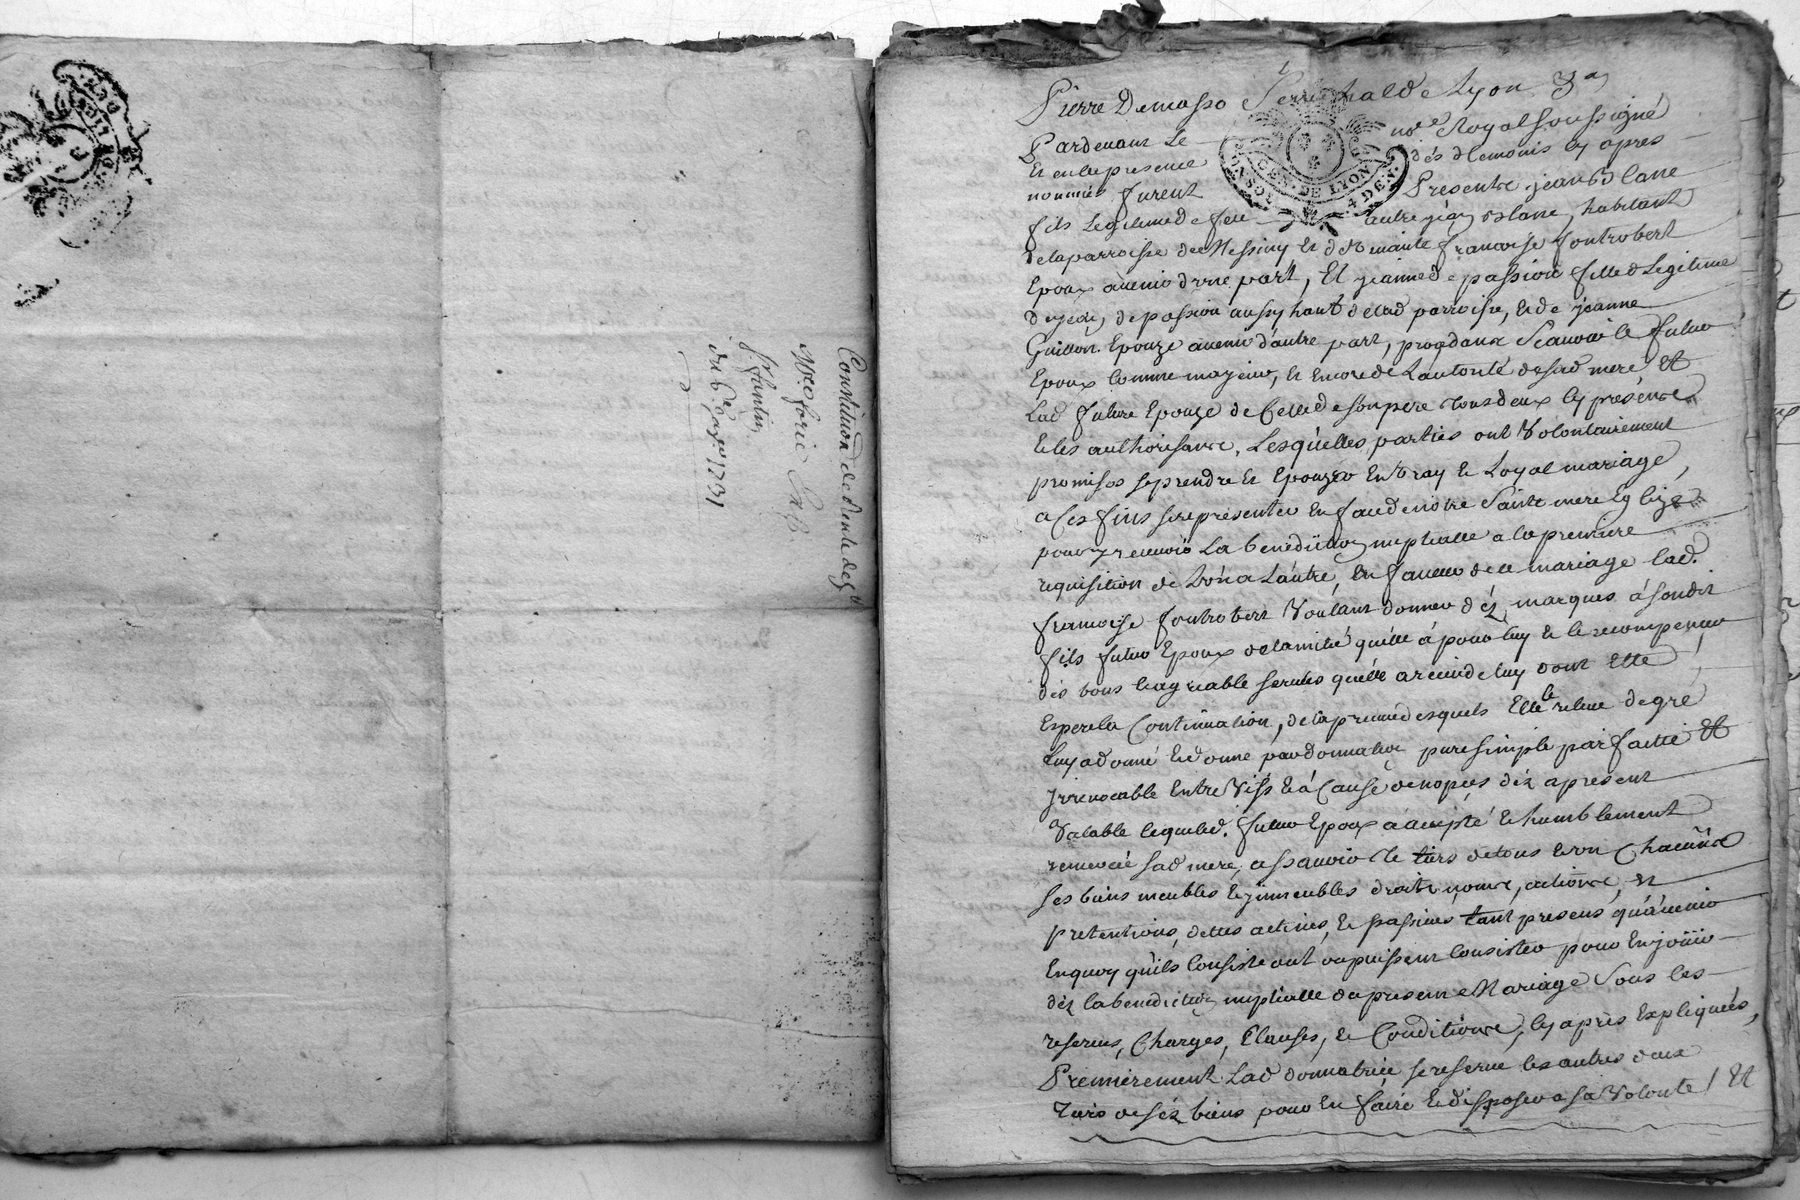 Constitution de Rente de
du 6e 1731
Pierre Demasso Lyon
Pardevant Le no.re Royal soussigné
Et en la presence dés temoins cy apres
nommés furent Presents jean
fils Legitime de feu autre jean habitant
de la parroisse de Messimy et d'honneste francoise fontrobert
Epoux avenir d'une part, Et jeanne de passion fille Legitime
de jean de passion aussy hant de lad parroisse, et de jeanne
Guillon Epouze avenir d'autre part, proqdant Scavoir le futur
Epoux comme majeur, et encore de L'autorité de sad mere Et
Lad future Epouze de Celle de son pere tous deux cy présents
et les authorisants, Lesquelles parties ont Volontairement
promis se prendre et Epouzer En Vray et Loyal mariage,
a Ces fins se representer En face de notre Sainte mere Eglize
pour y recevoir La benediction nuptialle a la premiere
requisition de L'un a L'autre, En faveur de ce mariage lad.
francoise fontrobert Voulant donner déz marques à sondit
fils futur Epoux de l'amitié qu'elle à pour luy et le recompenser
dés bons et agreable services qu'elle a receu de luy dont Elle
Espere la Continuation, de la preuve desquels Elle le releve de gré
Luy a donné et donne par donnation pure simple parfaitte Et
jrrevocable Entre Vifs et à Cause de nopces déz apresent
Valable lequel d. futur Epoux à accepté et humblement
remercié sad mere, assavoir le tiers de tous et un Chacuns
ses biens meubles et jmmeubles droits noms, actions, et
pretentions, dettes actives, et passives tant presens qu'àvenir
En quoy qu'ils Consistent ou puissent Consister pour En joüir
déz la benediction nuptialle du present Mariage Sous les
reserves, Charges, Clauses, et Conditions, cy après Expliquées,
Premierement Lad donnatrice se reserve les autres deux
tiers de séz biens pour En faire et disposer a sa Volonté / Et